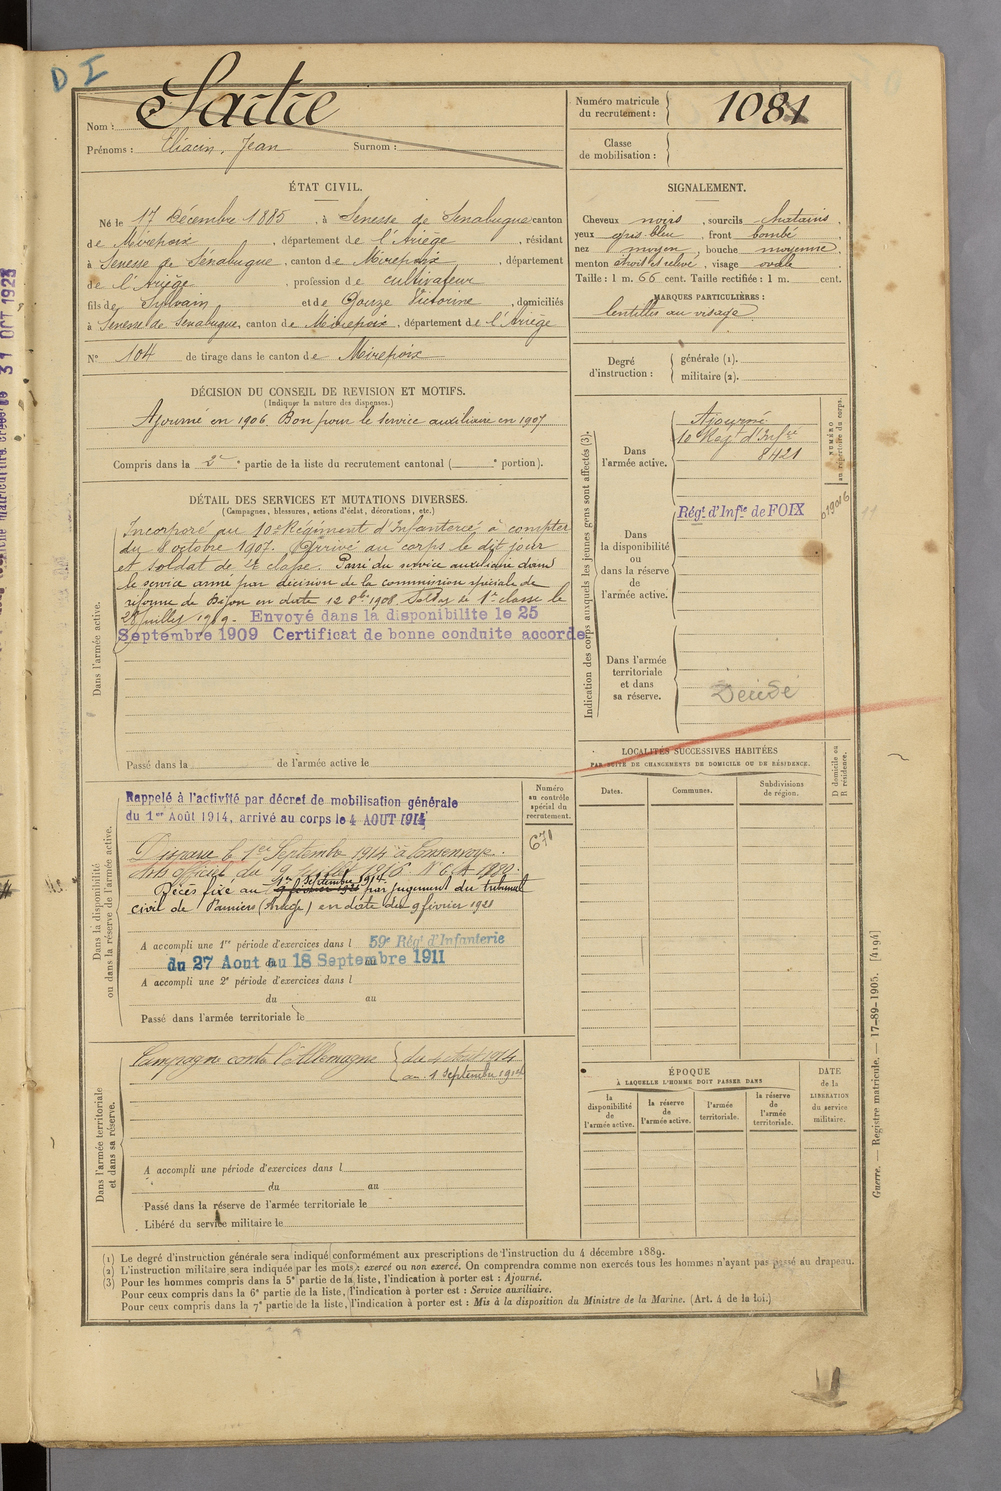 D I
Nom : Sartre
Prénoms : Eliacin, Jean Surnom :
Numéro matricule
du recrutement : 1081
Classe
de mobilisation :
ÉTAT CIVIL.
Né le 17 Décembre 1885, à Senesse de Senabugue canton
de Mirepoix, département de l'Ariège, résidant
à Senesse de Sénabugue, canton de Mirepoix, département
de l'Ariège, profession de cultivateur
fils de Sylvain et de Gouze Victorine, domiciliés
à Senesse de Senabugue, canton de Mirepoix, département de l'Ariège
N° 104 de tirage dans le canton de Mirepoix
SIGNALEMENT.
Cheveux noirs, sourcils chatains,
yeux gris-bleu, front bombé
nez moyen, bouche moyenne,
menton étroit et relevé, visage ovale
Taille : 1 m. 66 cent. Taille rectifiée : 1 m. cent.
MARQUES PARTICULIÈRES :
lentilles au visage
Degré
d'instruction :
générale (1).
militaire (2).
DÉCISION DU CONSEIL DE REVISION ET MOTIFS.
(Indiquer la nature des dispenses.)
Ajourné en 1906 Bon pour le service auxiliaire en 1907
Compris dans la 2e partie de la liste du recrutement cantonal ( e portion).
DÉTAIL DES SERVICES ET MUTATIONS DIVERSES.
(Campagnes, blessures, actions d'éclat, décorations, etc.)
Dans l'armée active.
Incorporé au 10e Régiment d'Infanterie à compter
du 8 octobre 1907. Arrivé au corps le dit jour
et soldat de 2e classe. Passé du service auxiliaire dans
le service armé par décision de la commission spéciale de
réforme de Dijon en date 12 8bre 1908 Soldat de 1re classe le
28 juillet 1909. Envoyé dans la disponibilite le 25
Septembre 1909 Certificat de bonne conduite accorde
Passé dans la de l'armée active le
Indication des corps auxquels les jeunes gens sont affectés (3).
NUMÉRO
au répertoire du corps.
Dans
l'armée active.
Ajourné
10e Régt d'Infie
8421
Dans
la disponibilité
ou
dans la réserve
de
l'armée active.
Régt d'Infie de FOIX
Dans l'armée
territoriale
et dans
sa réserve.
Décédé
LOCALITÉS SUCCESSIVES HABITÉES
PAR SUITE DE CHANGEMENTS DE DOMICILE OU DE RÉSIDENCE.
Dates.
Communes.
Subdivisions
de région.
D domicile ou
R résidence.
Dans la disponibilité
ou dans la réserve de l'armée active.
Numéro
au contrôle
spécial du
recrutement.
671
Rappelé à l'activité par décret de mobilisation générale
du 1er Août 1914, arrivé au corps le 4 AOUT 1914
Disparu le 1er Septembre 1914 à
Avis officiel du
Décès fixé au 9 février 1921 1er Septembre 1914 par jugement du tribunal
civil de Pamiers (Ariège) en date du 9 février 1921
A accompli une 1re période d'exercices dans l 59e Régt d'Infanterie
du 27 Aout au 18 Septembre 1911
A accompli une 2e période d'exercices dans l
du au
Passé dans l'armée territoriale le
Dans l'armée territoriale
et dans sa réserve.
Campagne contre l'Allemagne du 4 Aout 1914
au 1 Septembre 1914
A accompli une période d'exercices dans l
du au
Passé dans la réserve de l'armée territoriale le
Libéré du service militaire le
ÉPOQUE
À LAQUELLE L'HOMME DOIT PASSER DANS
la
disponibilité
de
l'armée active.
la réserve
de
l'armée active.
l'armée
territoriale.
la réserve
de
l'armée
territoriale.
DATE
de la
LIBÉRATION
du service
militaire.
(1) Le degré d'instruction générale sera indiqué conformément aux prescriptions de l'instruction du 4 décembre 1889.
(2) L'instruction militaire sera indiquée par les mots : exercé ou non exercé. On comprendra comme non exercés tous les hommes n'ayant pas passé au drapeau.
(3) Pour les hommes compris dans la 5e partie de la liste, l'indication à porter est : Ajourné.
Pour ceux compris dans la 6e partie de la liste, l'indication à porter est : Service auxiliaire.
Pour ceux compris dans la 7e partie de la liste, l'indication à porter est : Mis à la disposition du Ministre de la Marine. (Art. 4 de la loi.)
Guerre. — Registre matricule. — 17-89-1905. [4194]